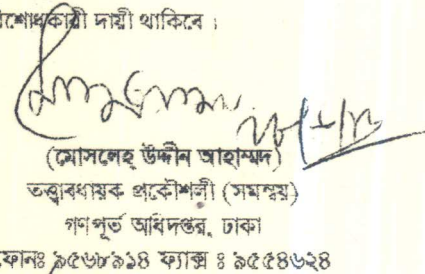 দায়ী থাকিবে ।
(মোসলেহ্ উদ্দীন আহাম্মদ)
তত্ত্বাবধায়ক প্রকৌশলী (সমন্বয়)
গণপূর্ত অধিদপ্তর, ঢাকা
ফোনঃ ৯৫৬৮৯১৪ ফ্যাক্স ঃ ৯৫৫৪৬২৪